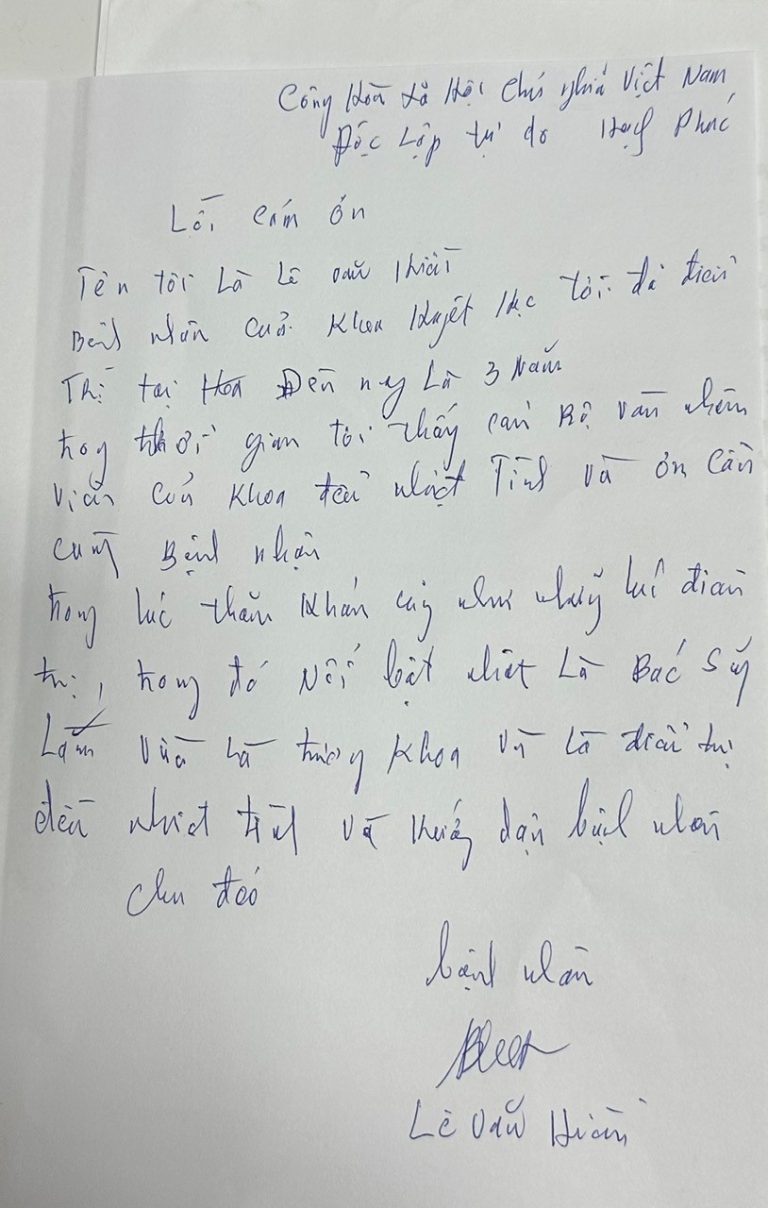 Cộng Hòa Xã Hội Chủ nghĩa Việt Nam
Độc Lập tự do Hạnh Phúc
Lời cảm ơn
Tên tôi Là Lê văn
Bệnh nhân của Khoa Huyết Học tôi đã điều
Trị tại Đến nay Là 3 Năm
trong thời gian tôi thấy cán Bộ nhân
viên của Khoa đều nhiệt Tình và ân Cần
cùng Bệnh nhân
trong lúc thăm Khám cũng như những lúc điều
trị, trong đó Nổi bật nhất Là Bác Sỹ
Lâm Vừa Là trưởng Khoa và Là điều trị
đều nhiệt tình và Hướng dẫn bệnh nhân
chu đáo
bệnh nhân
Lê Văn